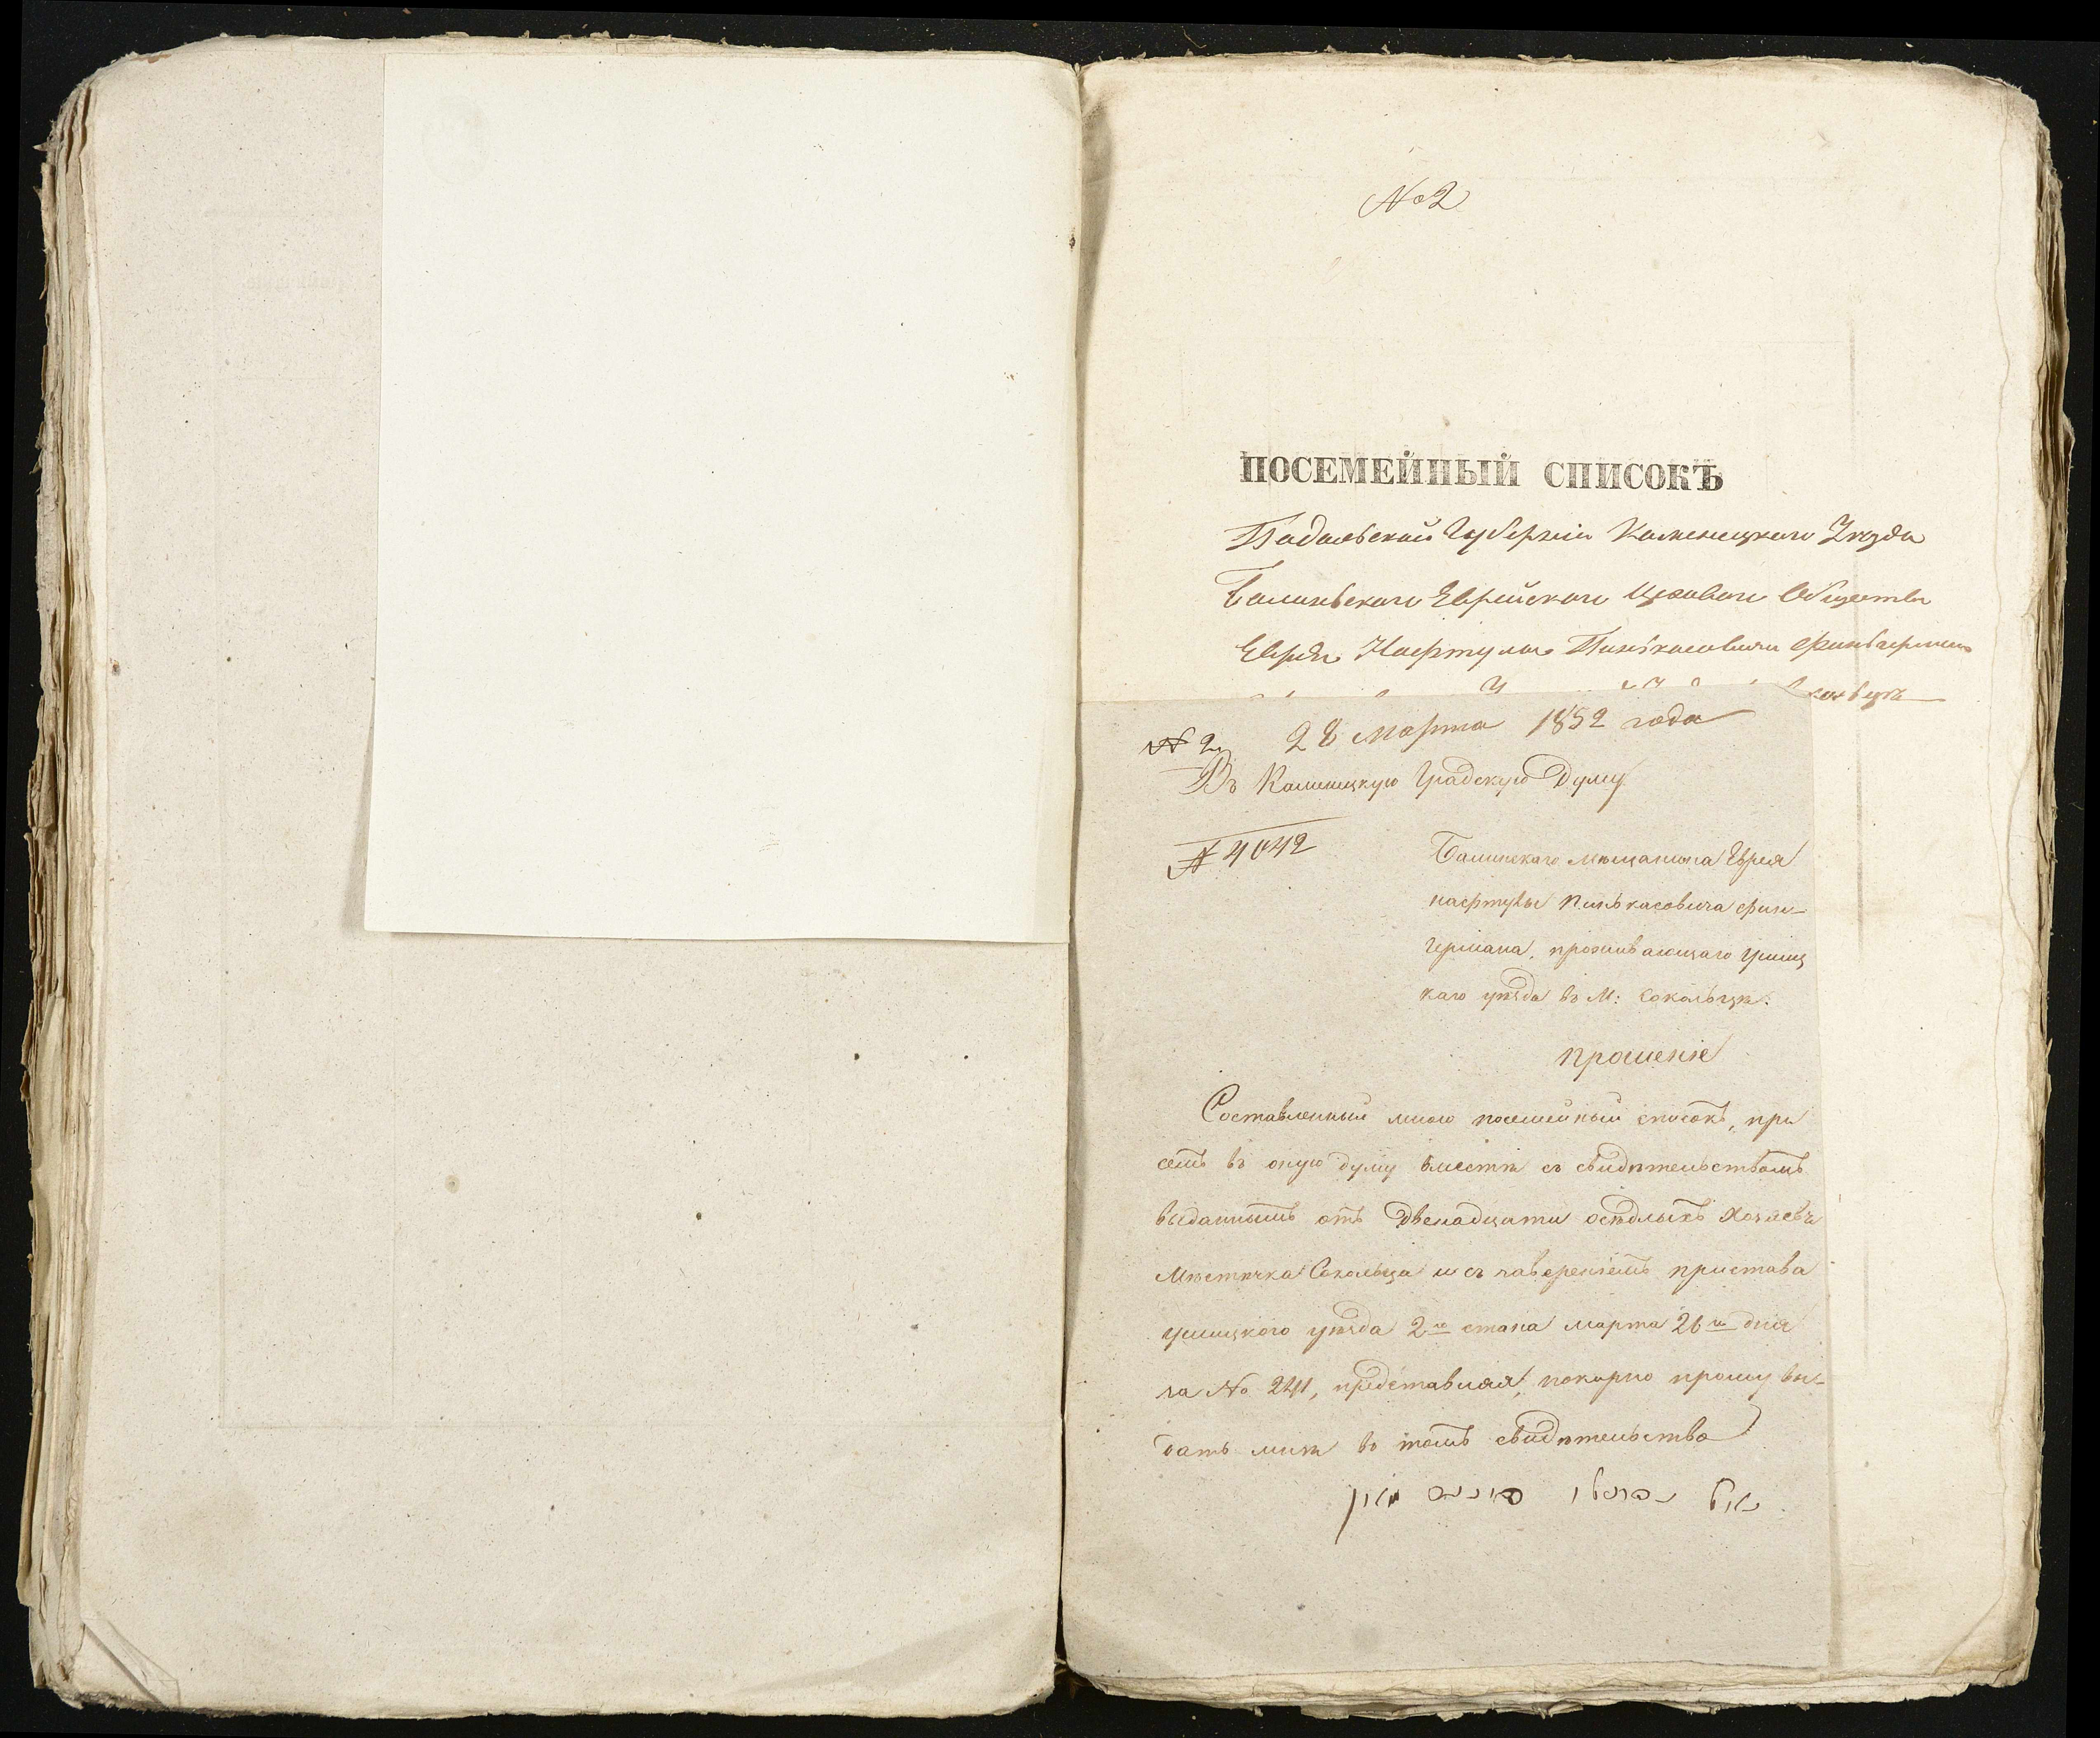 № 2
ПОСЕМЕЙНЫЙ СПИСОКЪ
Падольской Губерніи Каменецкого Уезда
Балинского Еврейскаго Цеховаго Общества
Еврея Нафтула Пинькасовича Фингермана
№ 2. 28 марта 1852 года
Въ Каменецкую Градскую Думу
№ 4042
Балинскаго мещанина Еврея
нафтулы Пинькасовича фин-
германа, проживающаго Ушиц
каго уезда въ М: Сокольце.
прошеніе
Составленный мною посемейный списокъ, при
семъ въ оную думу вместе съ свидетельствомъ
выданнымъ отъ двенадцати оседлыхъ Хозяевъ
Местечка Сокольца и съ завереніемъ пристава
ушицкого уезда 2го стана марта 26го дня
за No 2241, представляя, покорно прошу вы-
дать мне въ томъ свидетельство